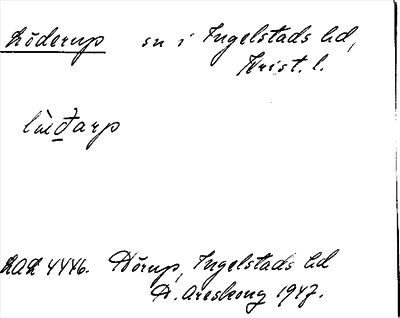 Löderup sn i Ingelstads hd,
Krist. l.
lùeđarp
LAL 4446. Hörup, Ingelstads hd
D. Areskoug 1947.